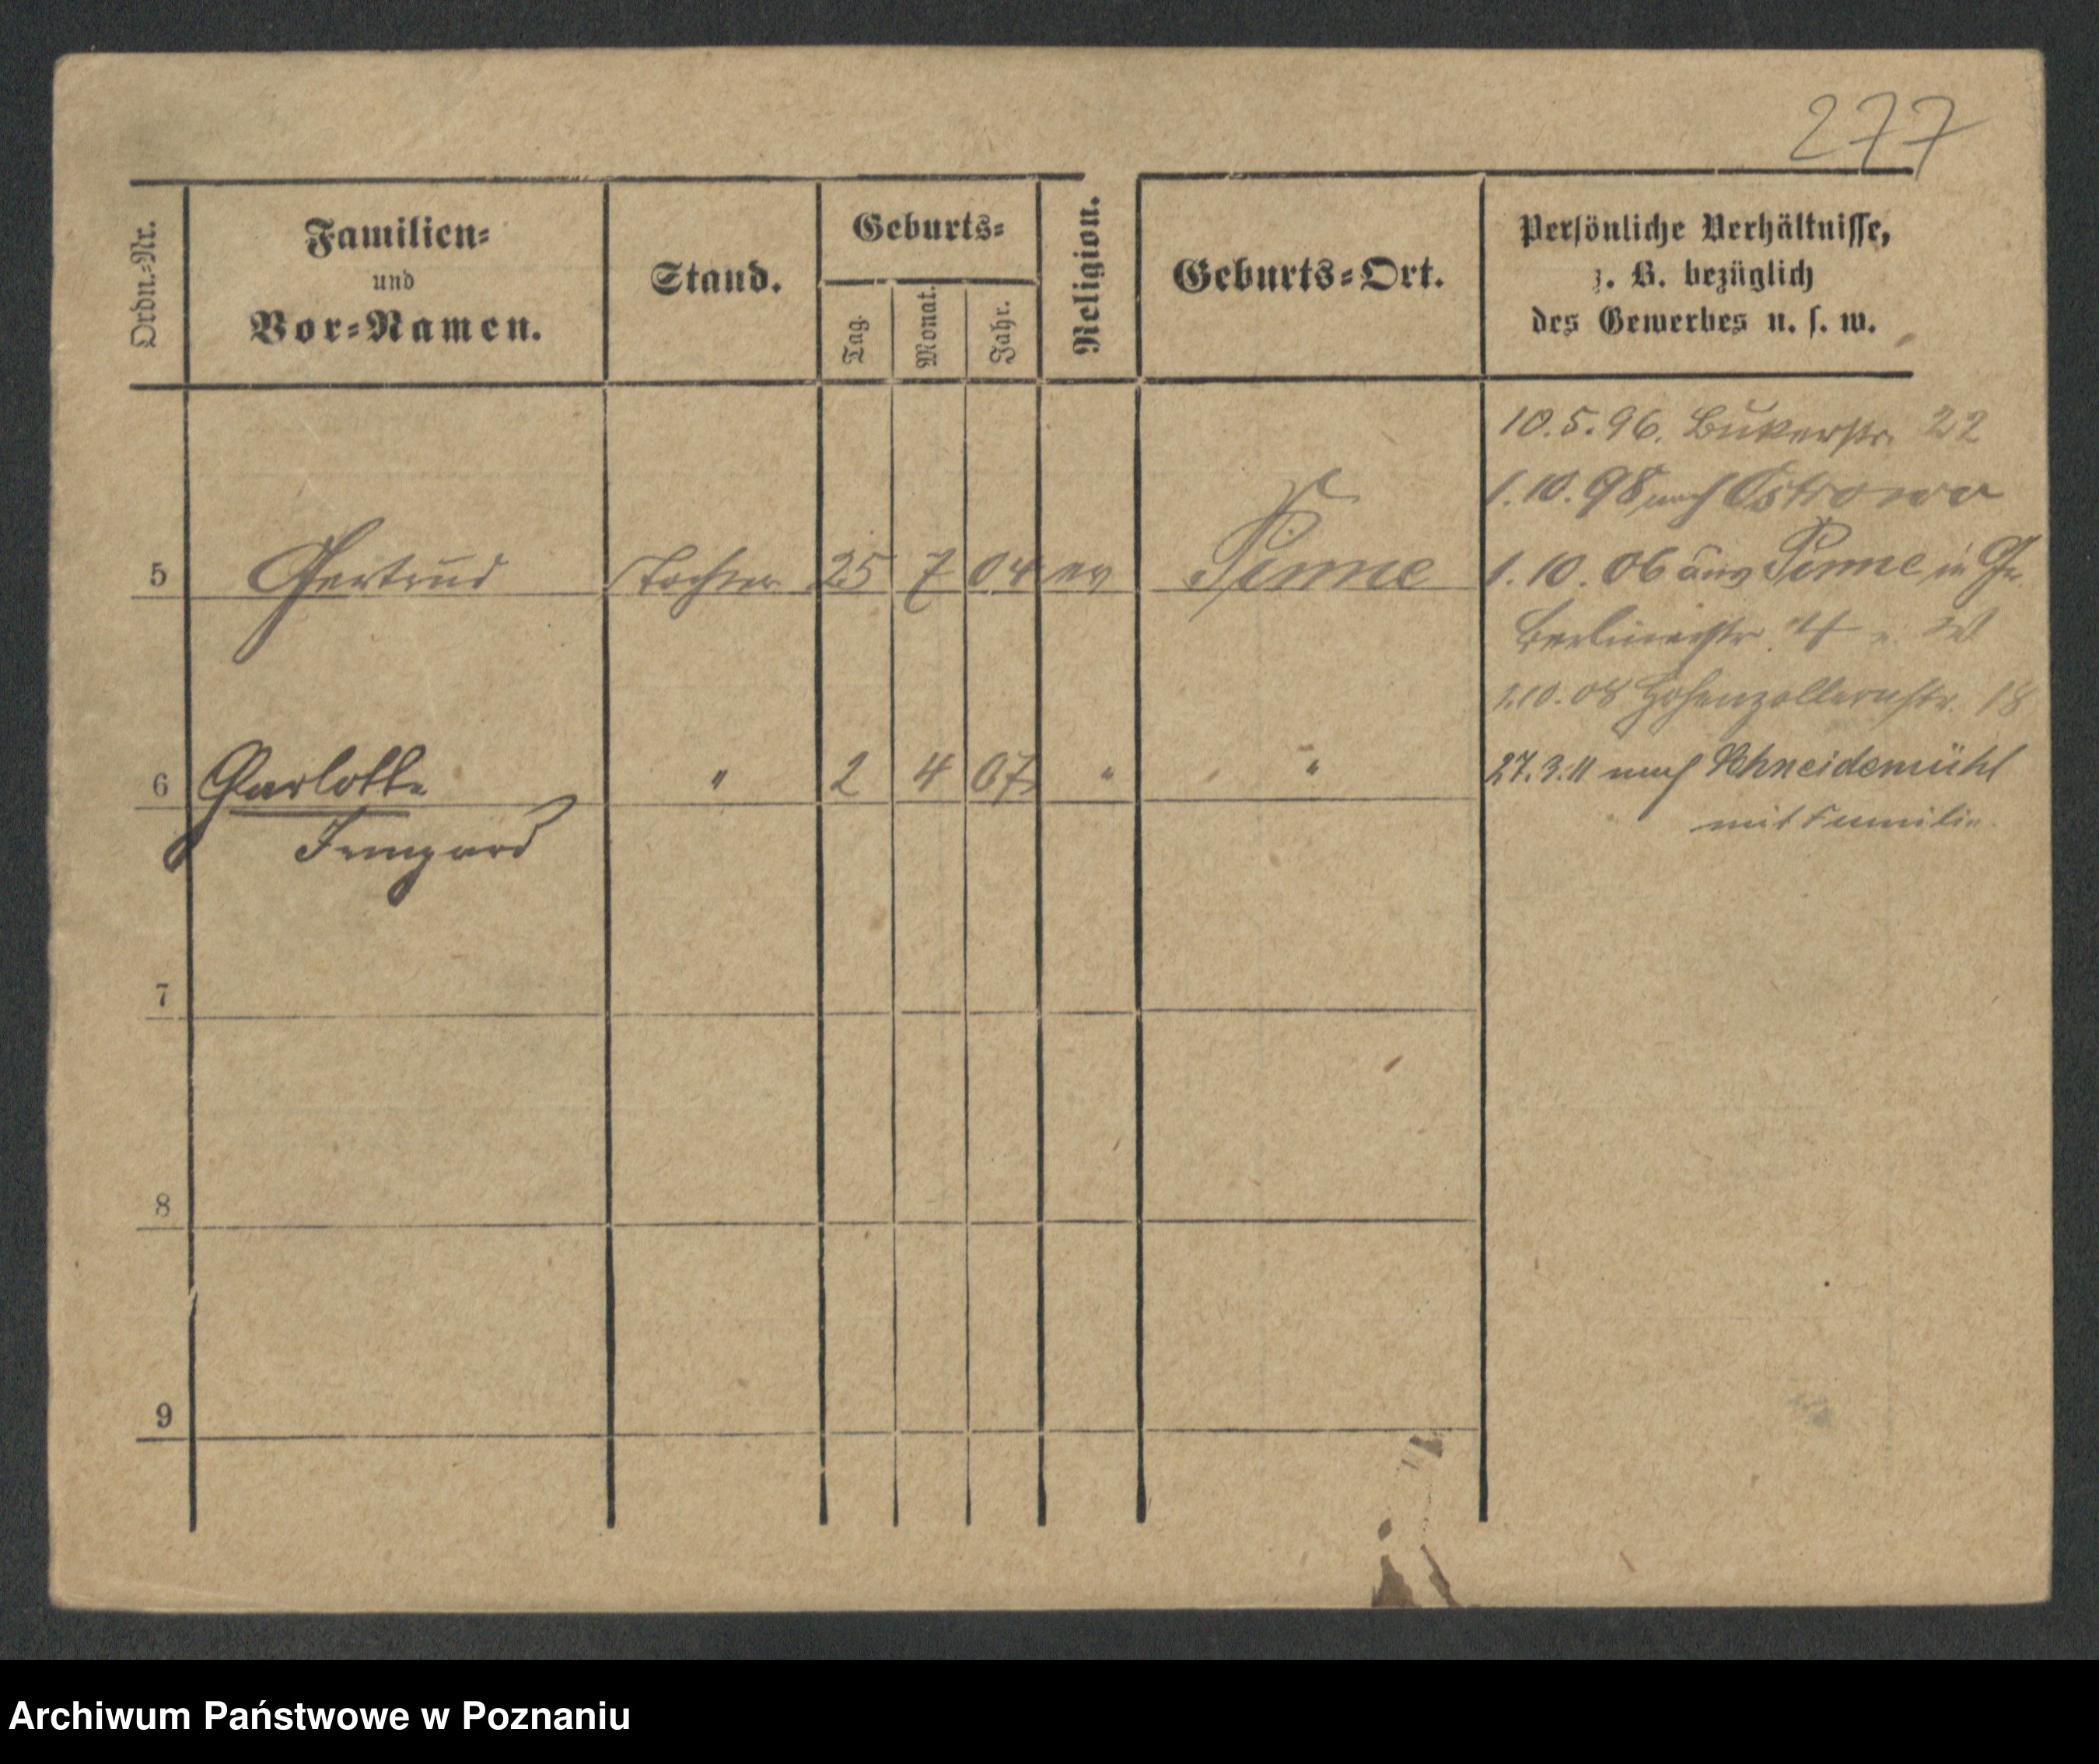 277
Ordn.-Nr.
Familien-
und
Vor-Namen.
Stand.
Geburts-
Tag.
Monat.
Jahr.
Religion.
Geburts-Ort.
Persönliche Verhältnisse,
z. B. bezüglich
des Gewerbes u. s. w.
10.5.96. Bukerstr. 22
1.10.98 nach Ostrowo
5 Gertrud Tochter 25 7 04 ev Pinne
1.10.06 aus Pinne in
Berlinerstr.
1.10.08 Hohenzollernstr. 18
6 Charlotte " 2 4 07 " "
Irmgard
27.3.11 nach Schneidemühl
mit Familie.
7
8
9
Archiwum Państwowe w Poznaniu